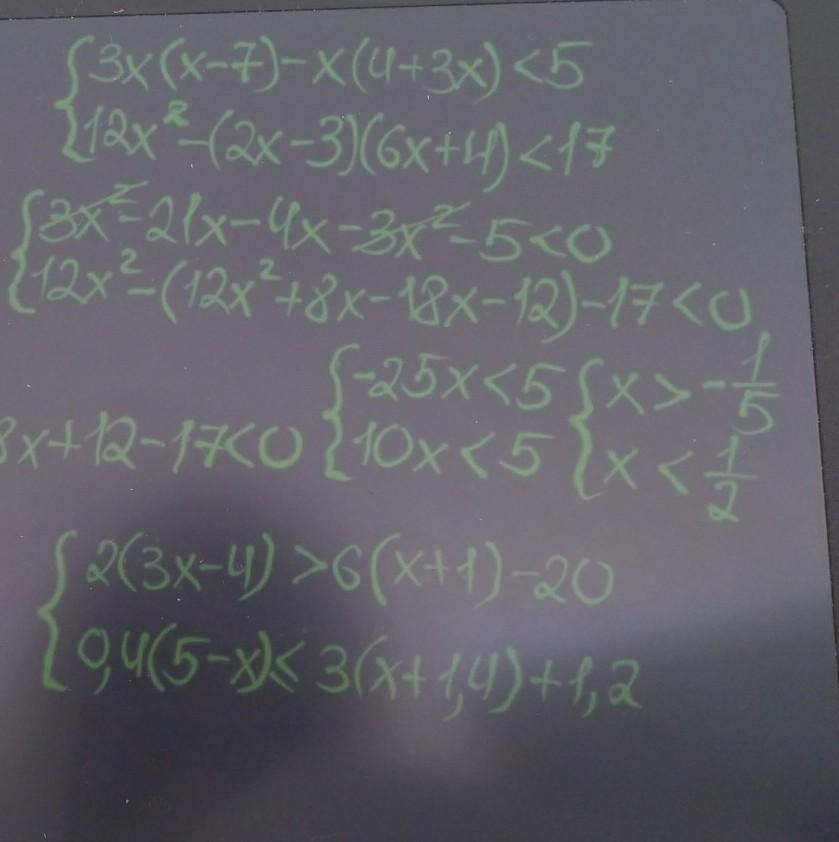 {3x(x-7)-x(4+3x)<5
{12x²-(2x-3)(6x+4)<17
{3x²-21x-4x-3x²-5<0
{12x²-(12x²+8x-18x-12)-17<0
{-25x<5 {x>-1/5
8x+12-17<0 {10x<5 {x<1/2
{2(3x-4)>6(x+1)-20
{0,4(5-x)≤3(x+1,4)+1,2